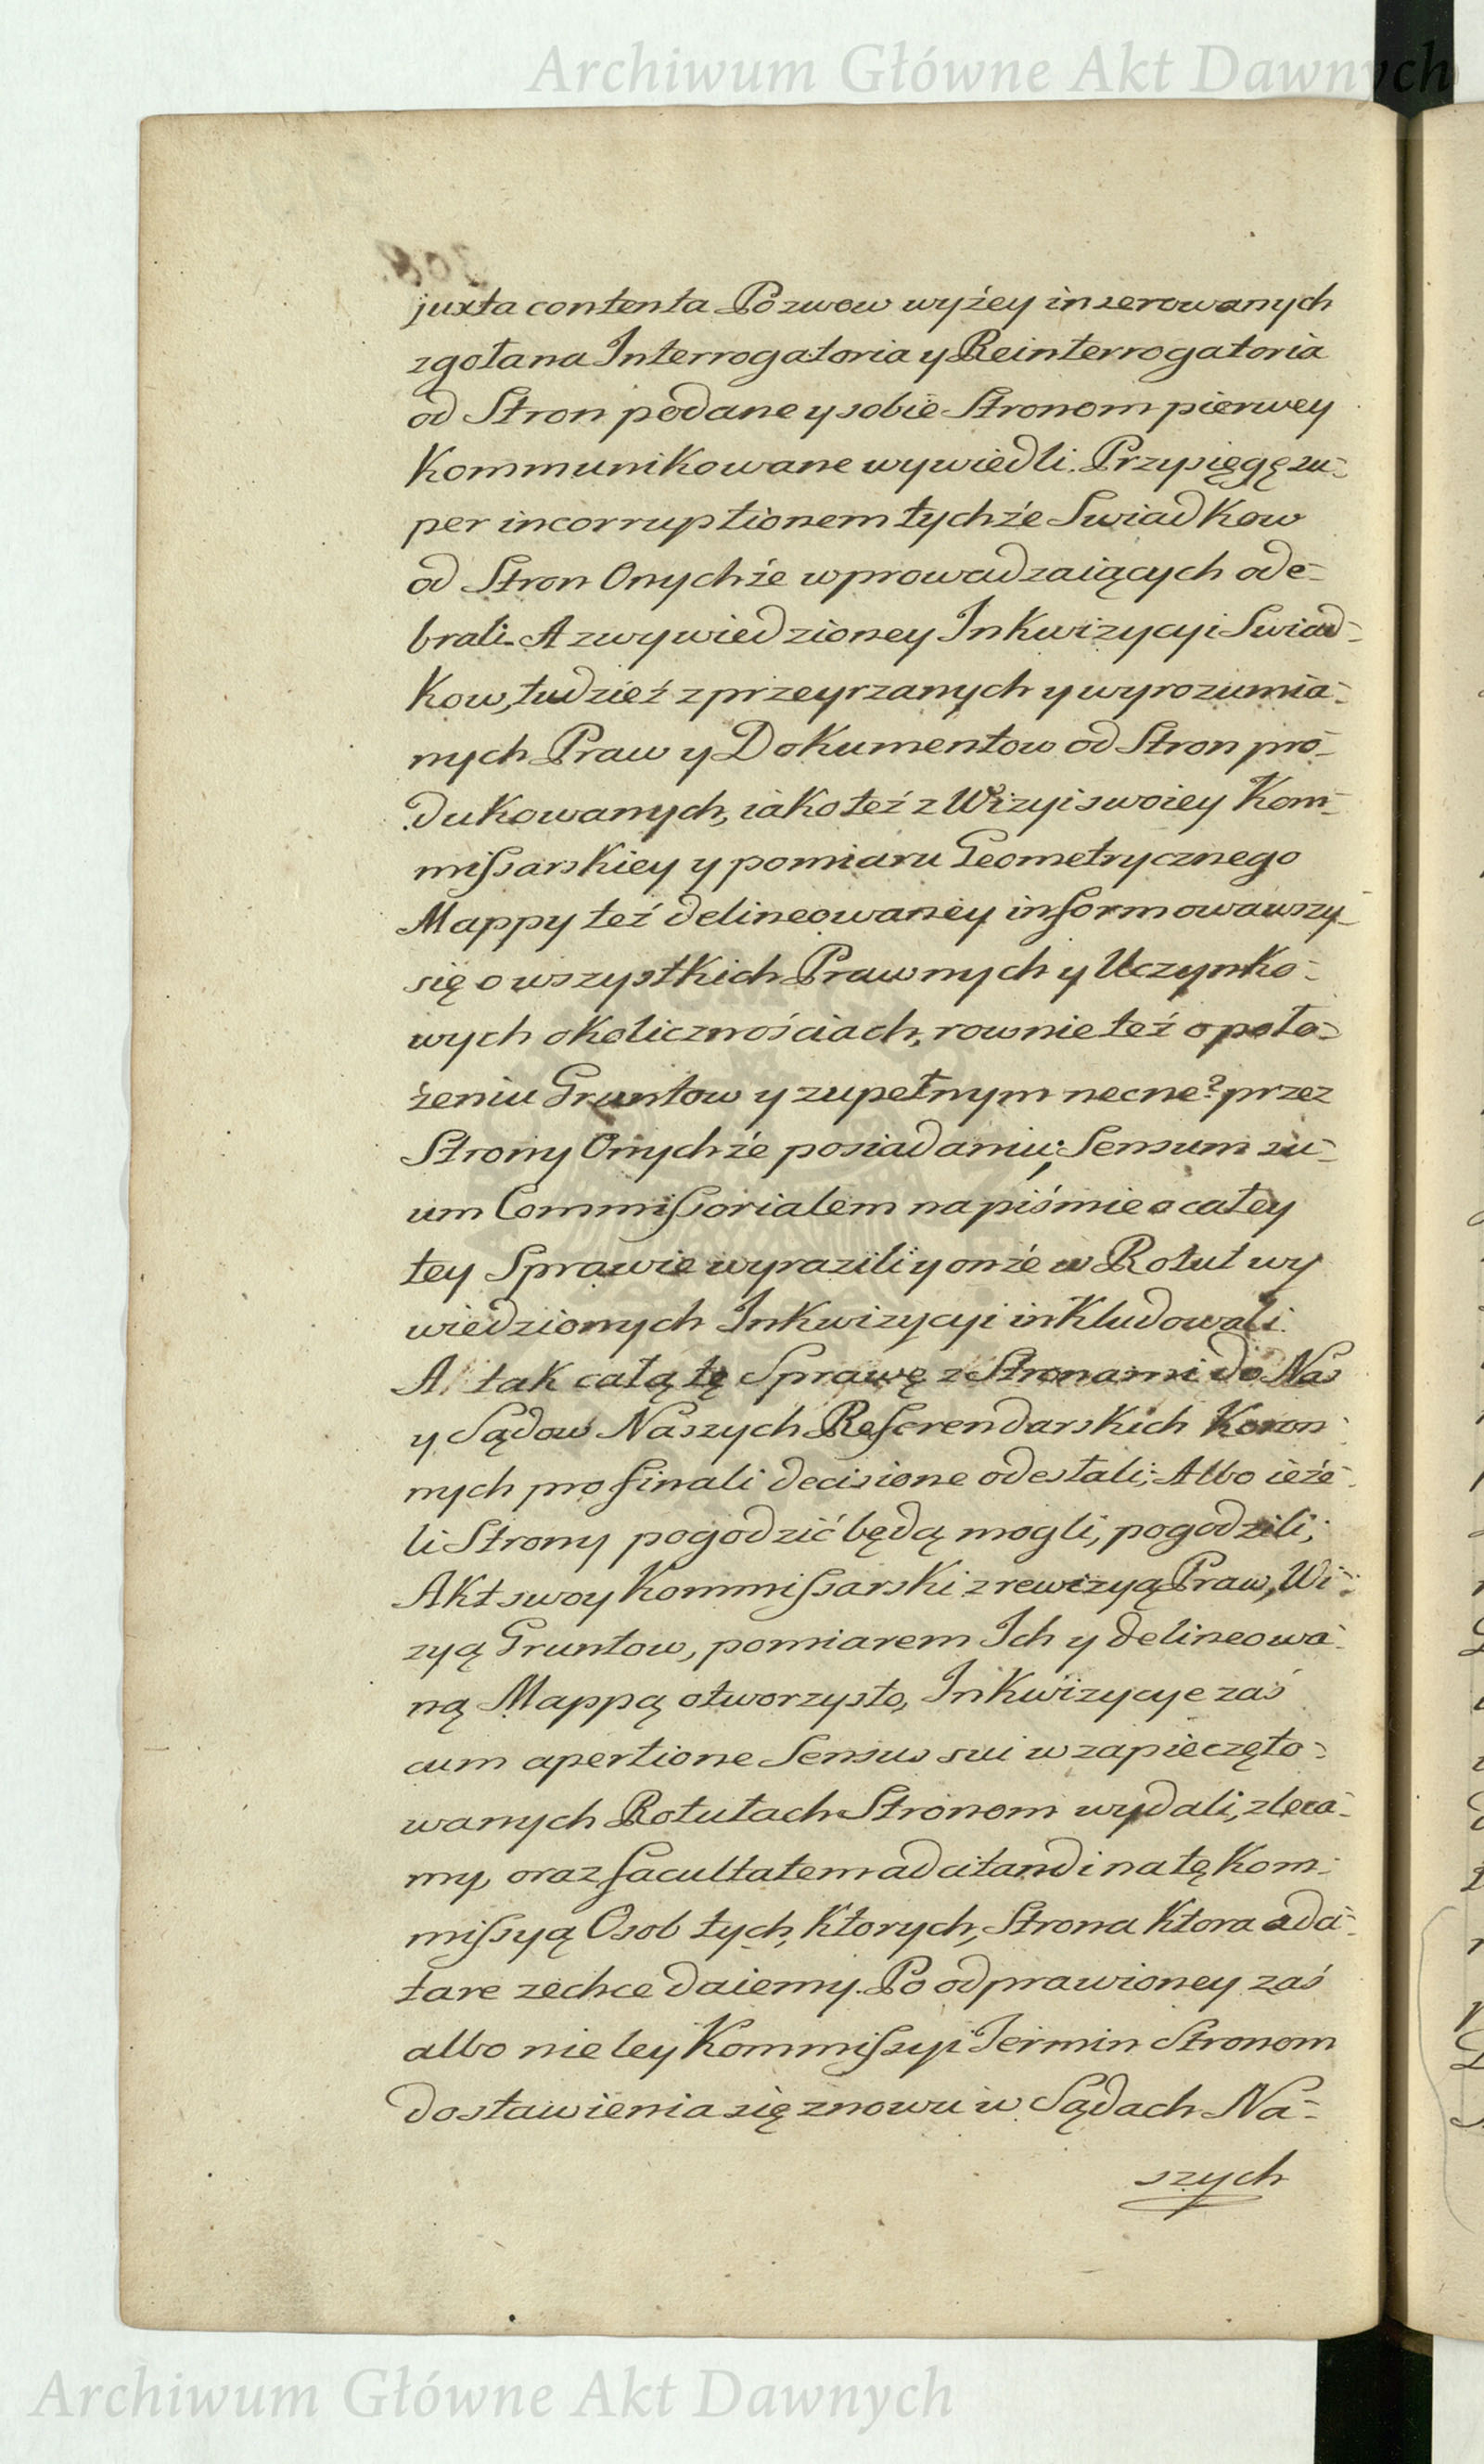 Archiwum Główne Akt Dawnych
juxta contenta Pozwow wyżey inserowanych
zgoła na Interrogatoria y Reinterrogatoria
od Stron podane y sobie Stronom pierwey
Kommunikowane wywiedli. Przysięgę su=
per incorruptionem tychże Swiadkow
od Stron Onychże wprowadzaiących ode=
brali. A z wywiedzioney Inkwizycyi Swiad=
kow, tudzież z przeyrzanych y wyrozumia=
nych Praw y Dokumentow od Stron pro=
dukowanych, iako też z Wizyi swoiey Kom=
missarskiey y pomiaru Geometrycznego
Mappy też delineowaney informowawszy
się o wszystkich Prawnych y Uczynko=
wych okolicznościach, rownie też o poło=
żeniu Gruntow y zupełnym necne? przez
Strony Onychże posiadaniu; Sensum su=
um Commissorialem na piśmie o całey
tey Sprawie wyrazili y onże w Rotuł wy
wiedzionych Inkwizycyi inkludowali.
A tak całą tę Sprawę z Stronami do Nas
y Sądow Naszych Referendarskich Koron=
nych pro finali decisione odesłali; Albo ieże=
li Strony pogodzić będą mogli, pogodzili;
Akt swoy Kommissarski z rewizyą Praw, Wi=
zyą Gruntow, pomiarem Ich y delineowa=
ną Mappą otworzysto, Inkwizycye zaś
cum apertione Sensus sui w zapieczęto=
wanych Rotułach Stronom wydali, zleca=
my, oraz facultatem adcitandi na tę Kom=
missyą Osob tych, Ktorych, Strona Ktora adci=
tare zechce daiemy. Po odprawioney zaś
albo nie tey Kommissyi Termin Stronom
do stawienia się znowu w Sądach Na=
szych
Archiwum Główne Akt Dawnych